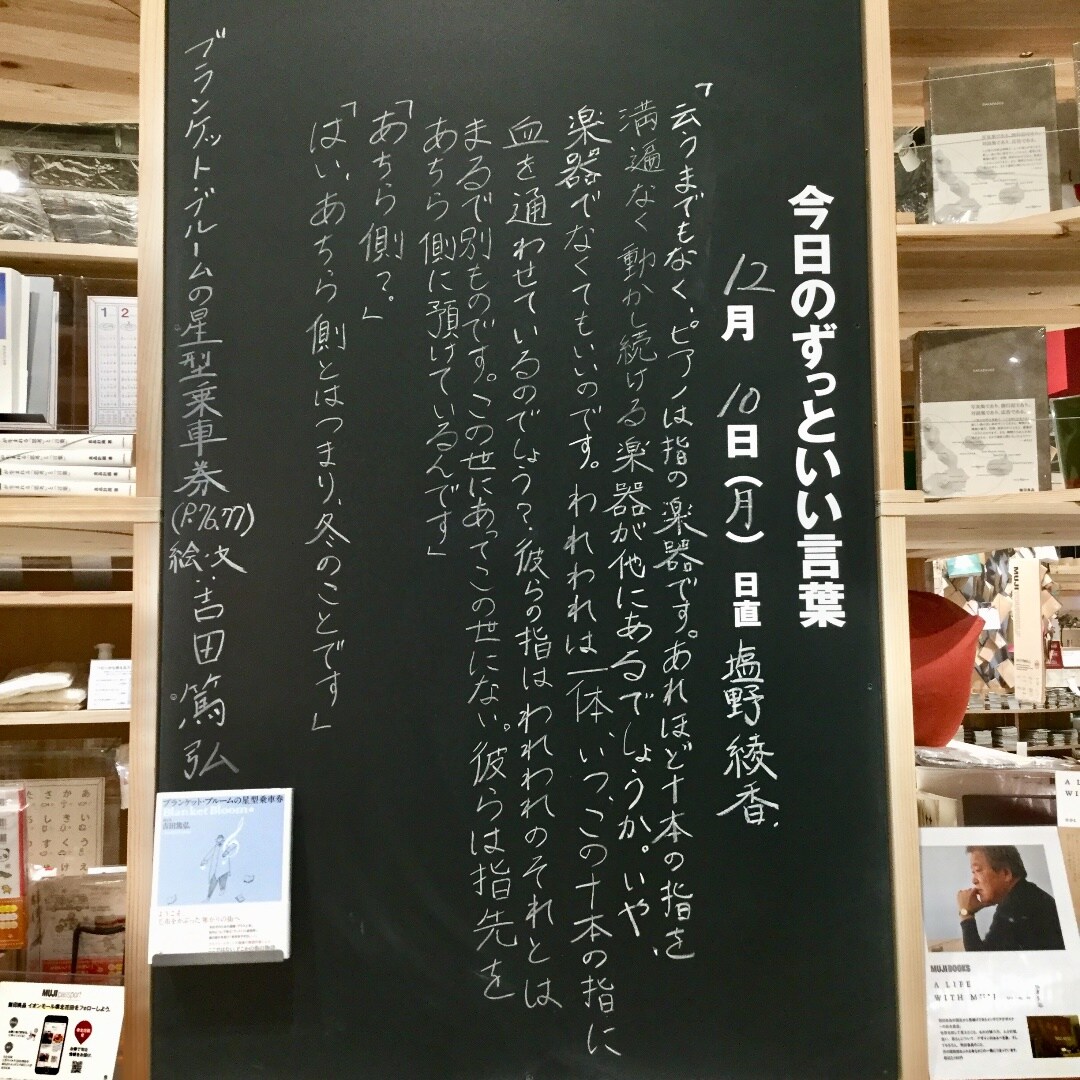 今日のずっといい言葉
12月10日(月)日直 塩野綾香.
「云うまでもなく、ピアノは指の楽器です。あれほど十本の指を
満遍なく動かし続ける楽器が他にあるでしょうか。いや、
楽器でなくてもいいのです。われわれは一体、いつ、この十本の指に
血を通わせているのでしょう?彼らの指はわれわれのそれとは
まるで別ものです。この世にあってこの世にない。彼らは指先を
あちら側に預けているんです」
「あちら側?。」
「はい、あちら側とはつまり、冬のことです」
ブランケット・ブルームの星型乗車券(P.76,77)
絵・文:吉田篤弘
ブランケット・ブルームの星型乗車券
Blanket Bloom
吉田篤弘
ようこそ
MUJI passport
無印良品 イオンモール堺北花田をフォローしよう。
MUJI BOOKS
A LIFE
WITH MUJI
MUJI
1 2